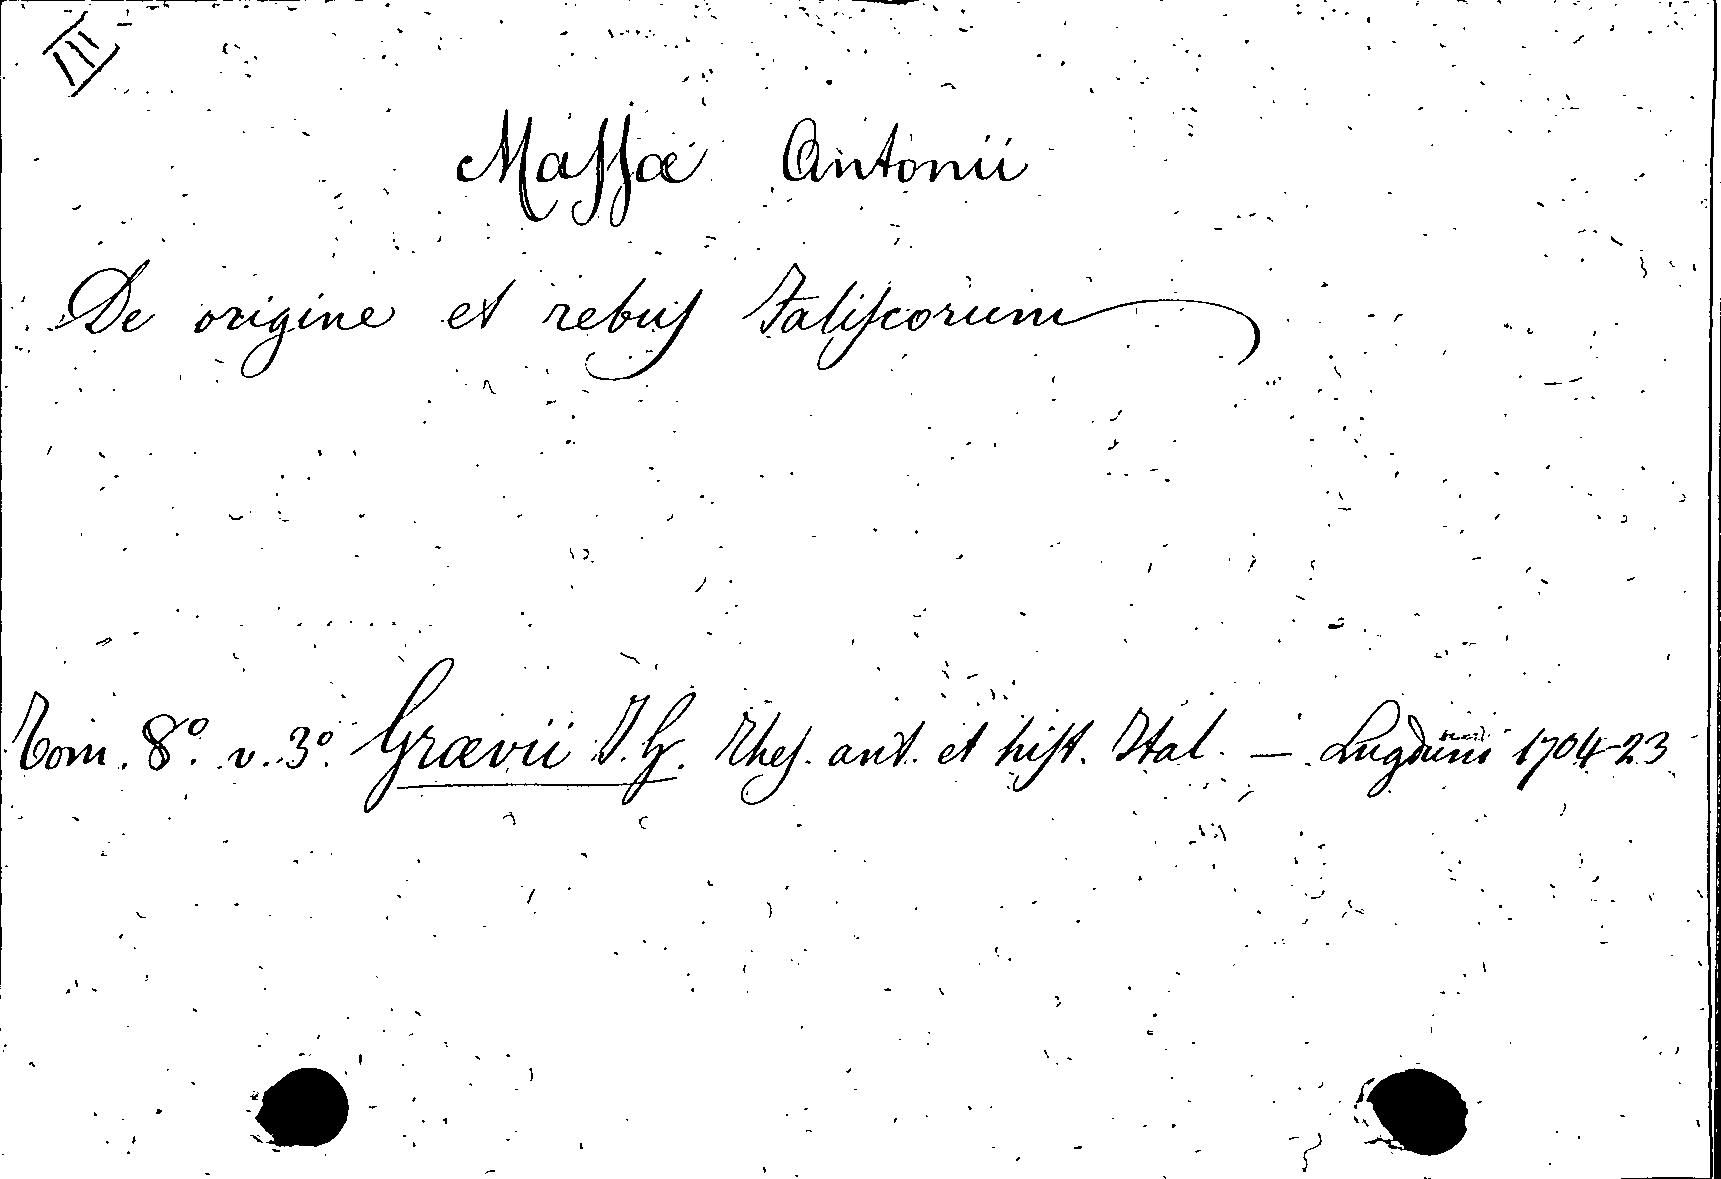 III
Massæ Antonii
De origine et rebus Faliscorum
Tom. 8º. v. 3º. Grævii J. G. Thes. ant. et hist. Ital. — Lugduni 1704-23